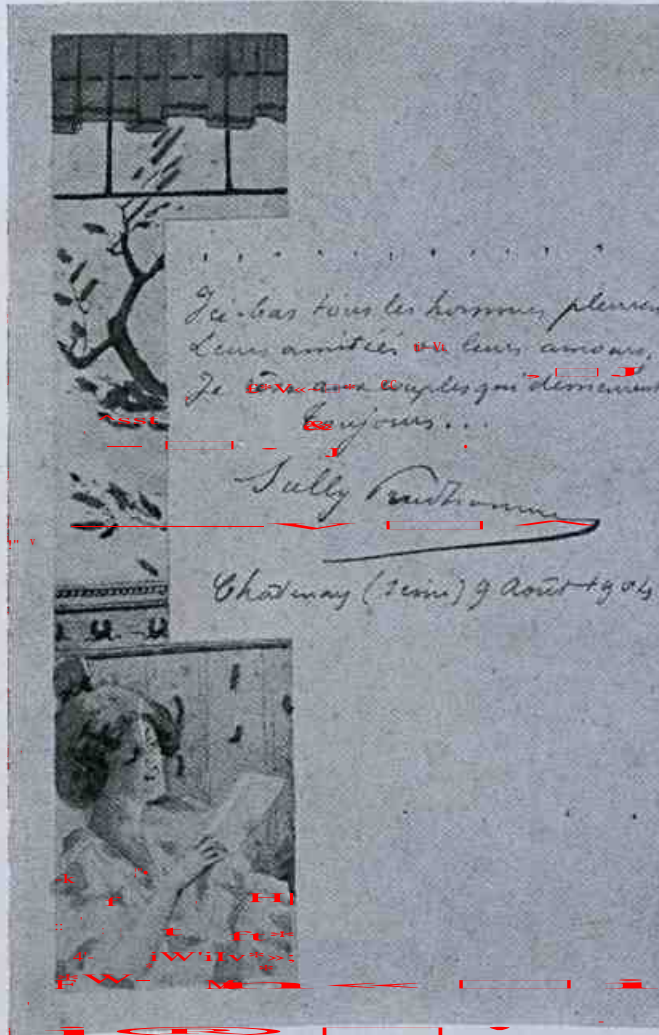 . . . . . . . . . . . .
Ici-bas tous les hommes pleurent
Leurs amitiés ou leurs amours,
Je rêve aux couples qui demeurent
Toujours...
Sully Prudhomme
Châtenay (Seine) 9 Août 1904